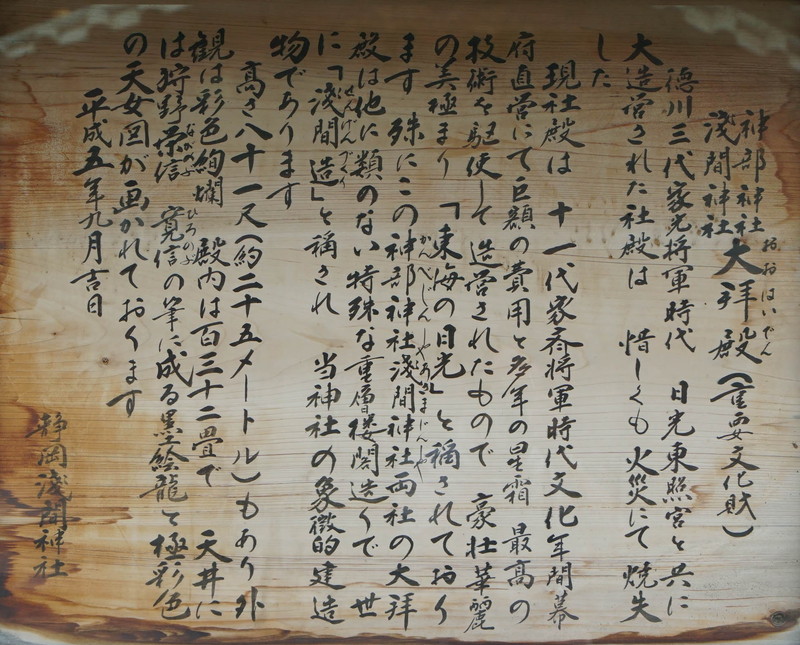 神部神社
浅間神社
大拝殿(重要文化財)
おおはいでん
徳川三代家光将軍時代 日光東照宮と共に
大造営された社殿は 惜しくも火災にて焼失
した
現社殿は 十一代家斉将軍時代文化年間幕
府直営にて巨額の費用と多年の星霜 最高の
技術を駆使して造営されたもので 豪壮華麗
の美極まり 「東海の日光」と稱されており
ます 殊にこの神部神社浅間神社両社の大拝
かんべじんしゃあさまじんじゃ
殿は他に類のない特殊な重層楼閣造りで世
に「浅間造」と稱され 当神社の象徴的建造
せんげんづくり
物であります
高さ八十一尺(約二十五メートル)もあり外
観は彩色絢爛 殿内は百三十二畳で 天井に
は狩野榮信 寛信の筆に成る墨絵龍と極彩色
ながのぶ ひろのぶ
の天女図が画かれております
平成五年九月吉日
静岡浅間神社